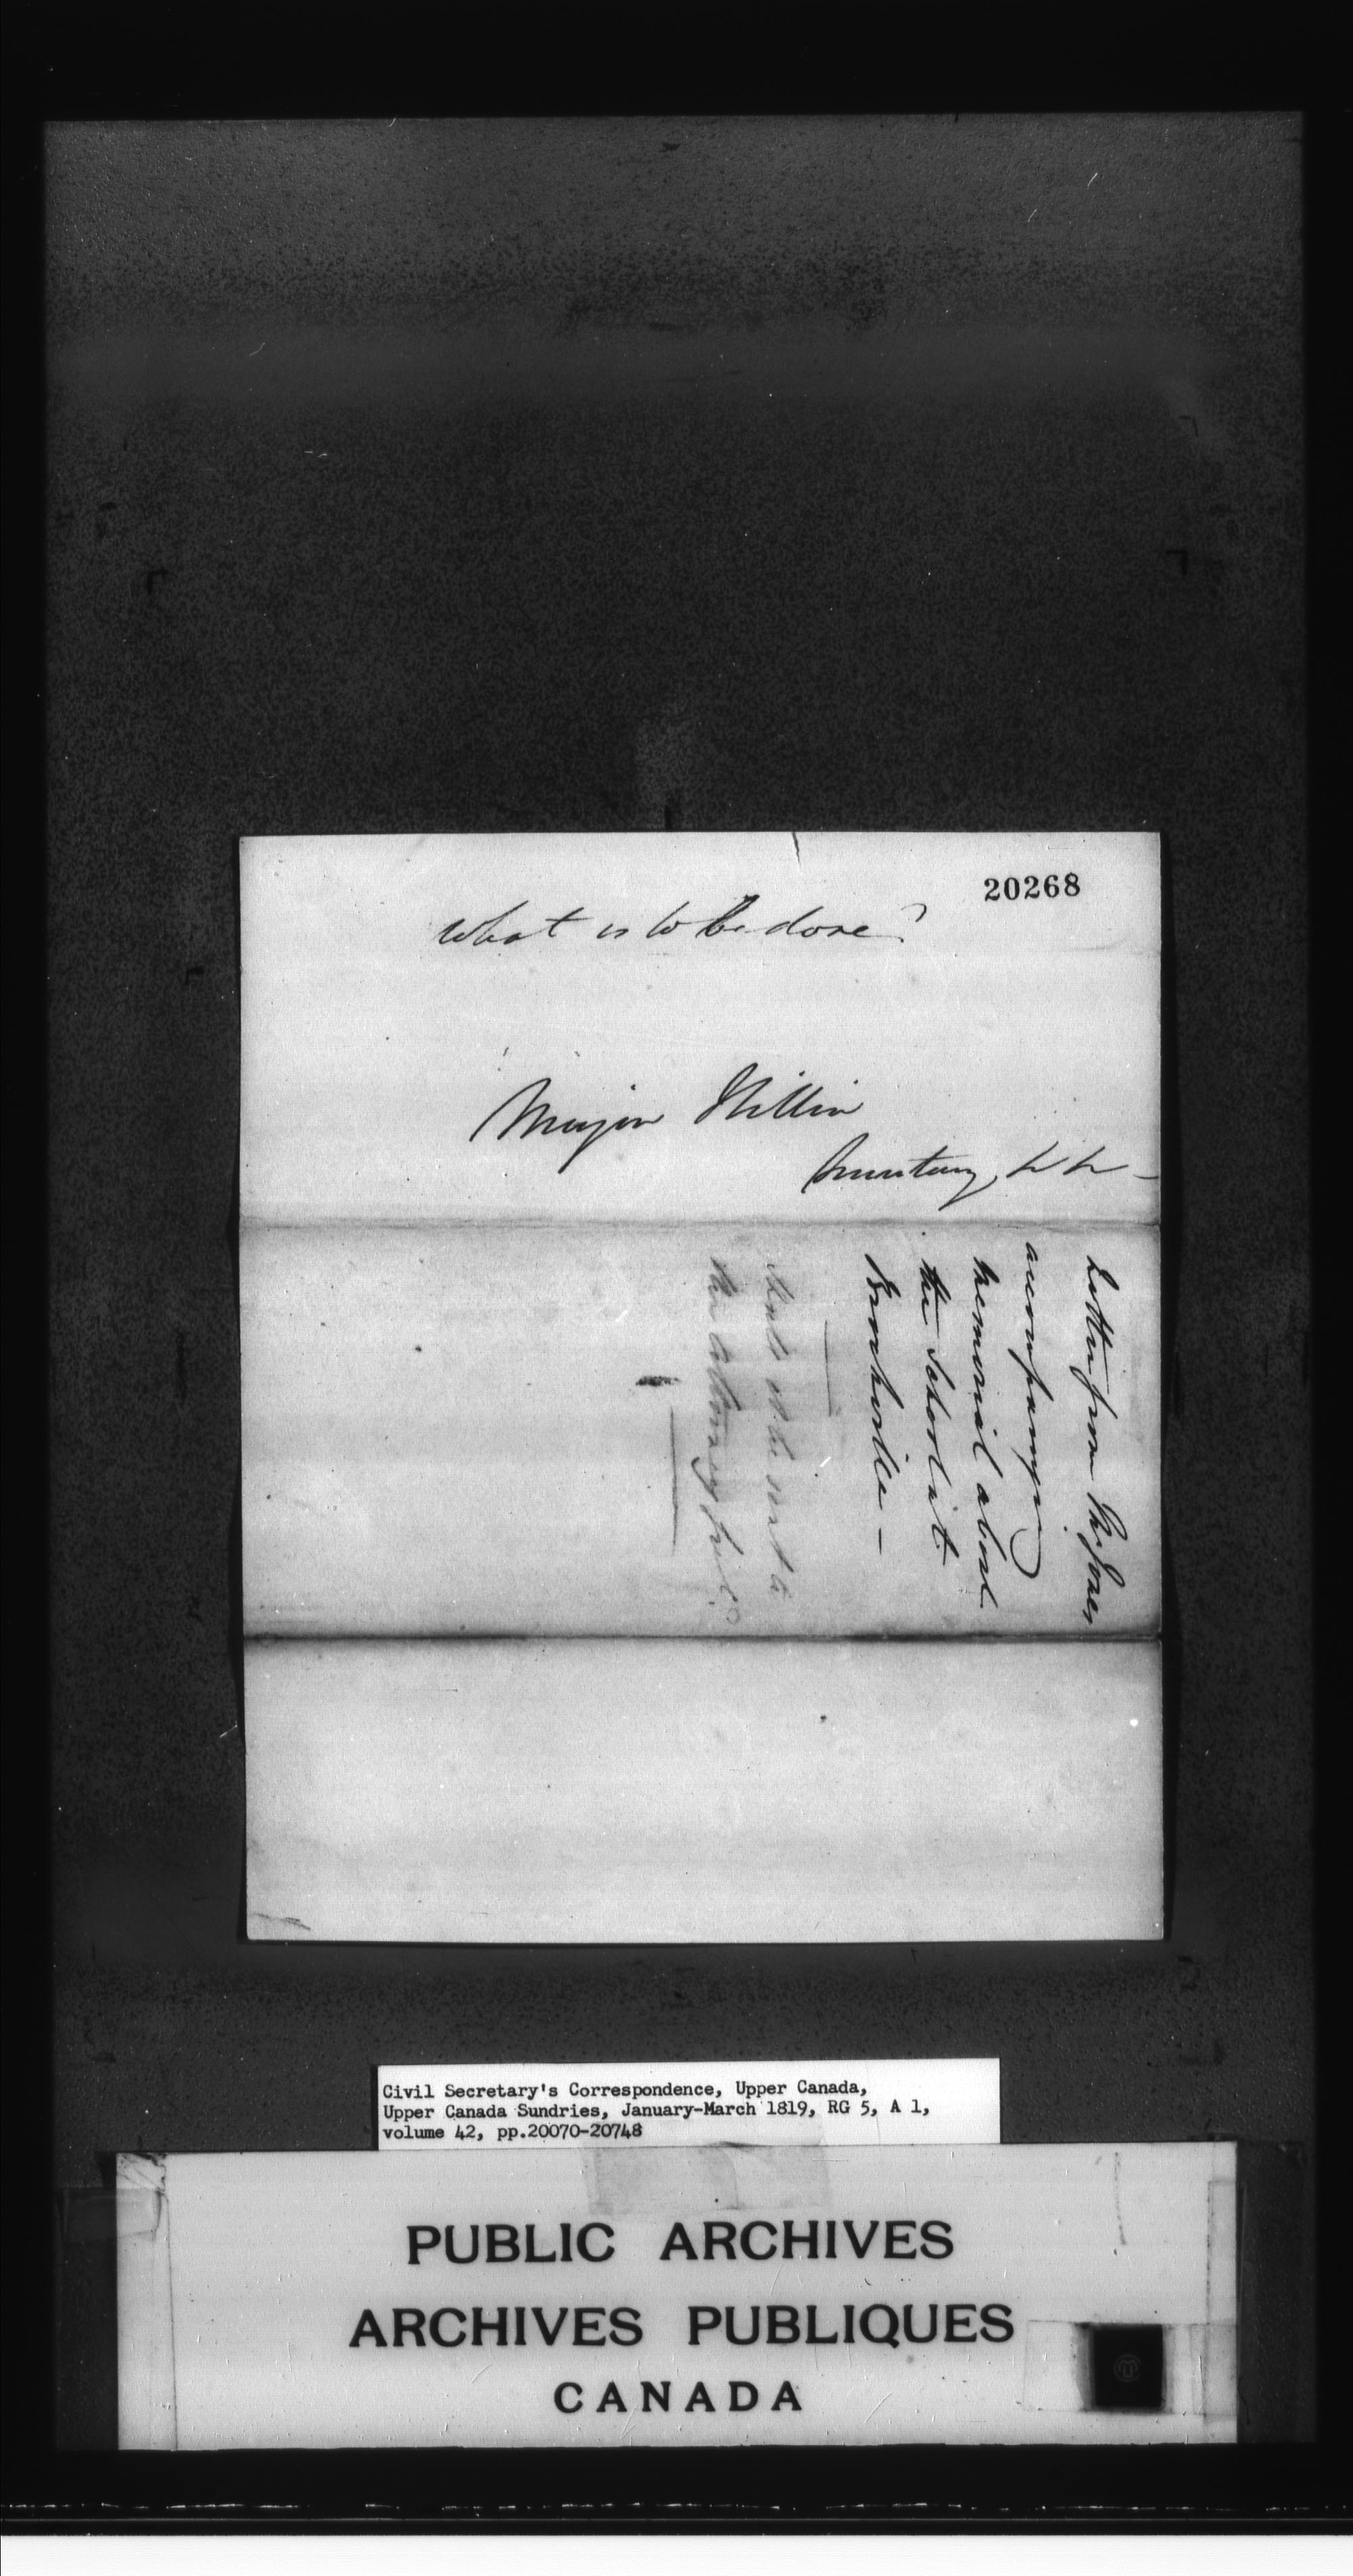 20268
What is to be done?
Major Hillier
Secretary &c &c -
Letter from Mr. Jones
accompanyg
memorial about
the School at
Brockville -
to be sent to
the Attorney Genl.
Civil Secretary's Correspondence, Upper Canada,
Upper Canada Sundries, January-March 1819, RG 5, A 1,
volume 42, pp.20070-20748
PUBLIC ARCHIVES
ARCHIVES PUBLIQUES
CANADA